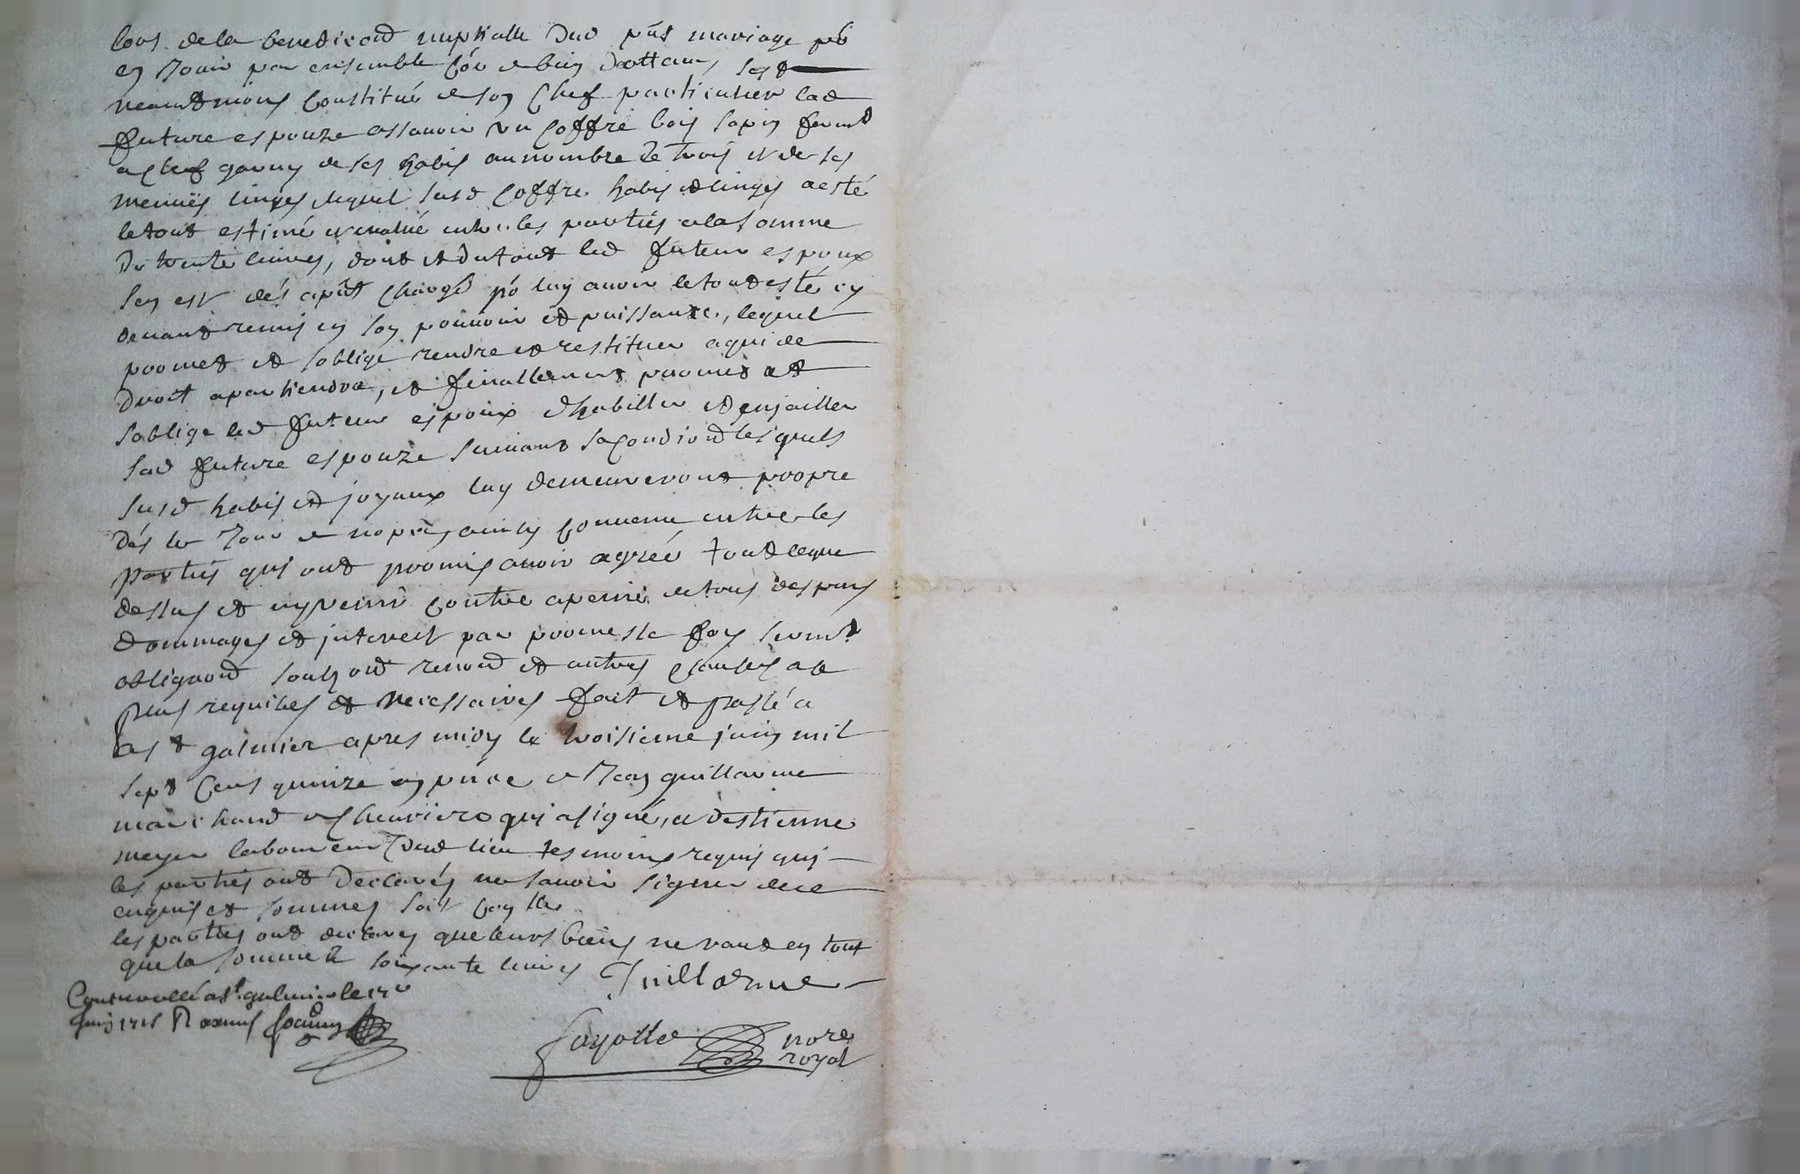 lors de la benediction nuptialle dud pnt mariage po
en jouir par ensemble
neantmoins constitué de son chef particulier lad
future espouze assavoir un coffre bois sapin fermt
a clef garny de ses habis au nombre de trois et de ses
menuës linges lequel susd coffre habis et linges a esté
le tout estimé et evalué entre les parties a la somme
de trente livres, dont et du tout led futeur espoux
sen est dés apñt chargé po luy avoir le tout esté cy
devant remis en son pouvoir et puissance, lequel
promet et soblige rendre et restituer a qui de
droit apartiendra, et finallement promet et
soblige led futeur espoux dhabiller et enjailler
sad future espouze suivant sa condiond lesquels
susd habis et joyaux luy demeureront propre
dés le jour de nopces ainsy convenu entre les
parties qui ont promis avoir agreé tout ce que
dessus et ny venir contre a peine de tous despans
dommages et interest par promesse foy sermt
obligaond soubzond renond et autres clauses a ce
plus requises et necessaires fait et passé a
a st galmier apres midy le troisieme juin mil
sept cens quinze en pñce de Jean guillaume
marchand de chevrieres qui a signé, et destienne
meyer laboureur dud lieu tesmoins requis qui
les parties ont declarés ne savoir signer de ce
enquis et sommes soit con lle
les parties ont declarés que leurs biens ne vaut en tout
que la somme de soixante livres Guillaume
Controullé a st galmier le
juin 1715 R
Fayolle nore
royal